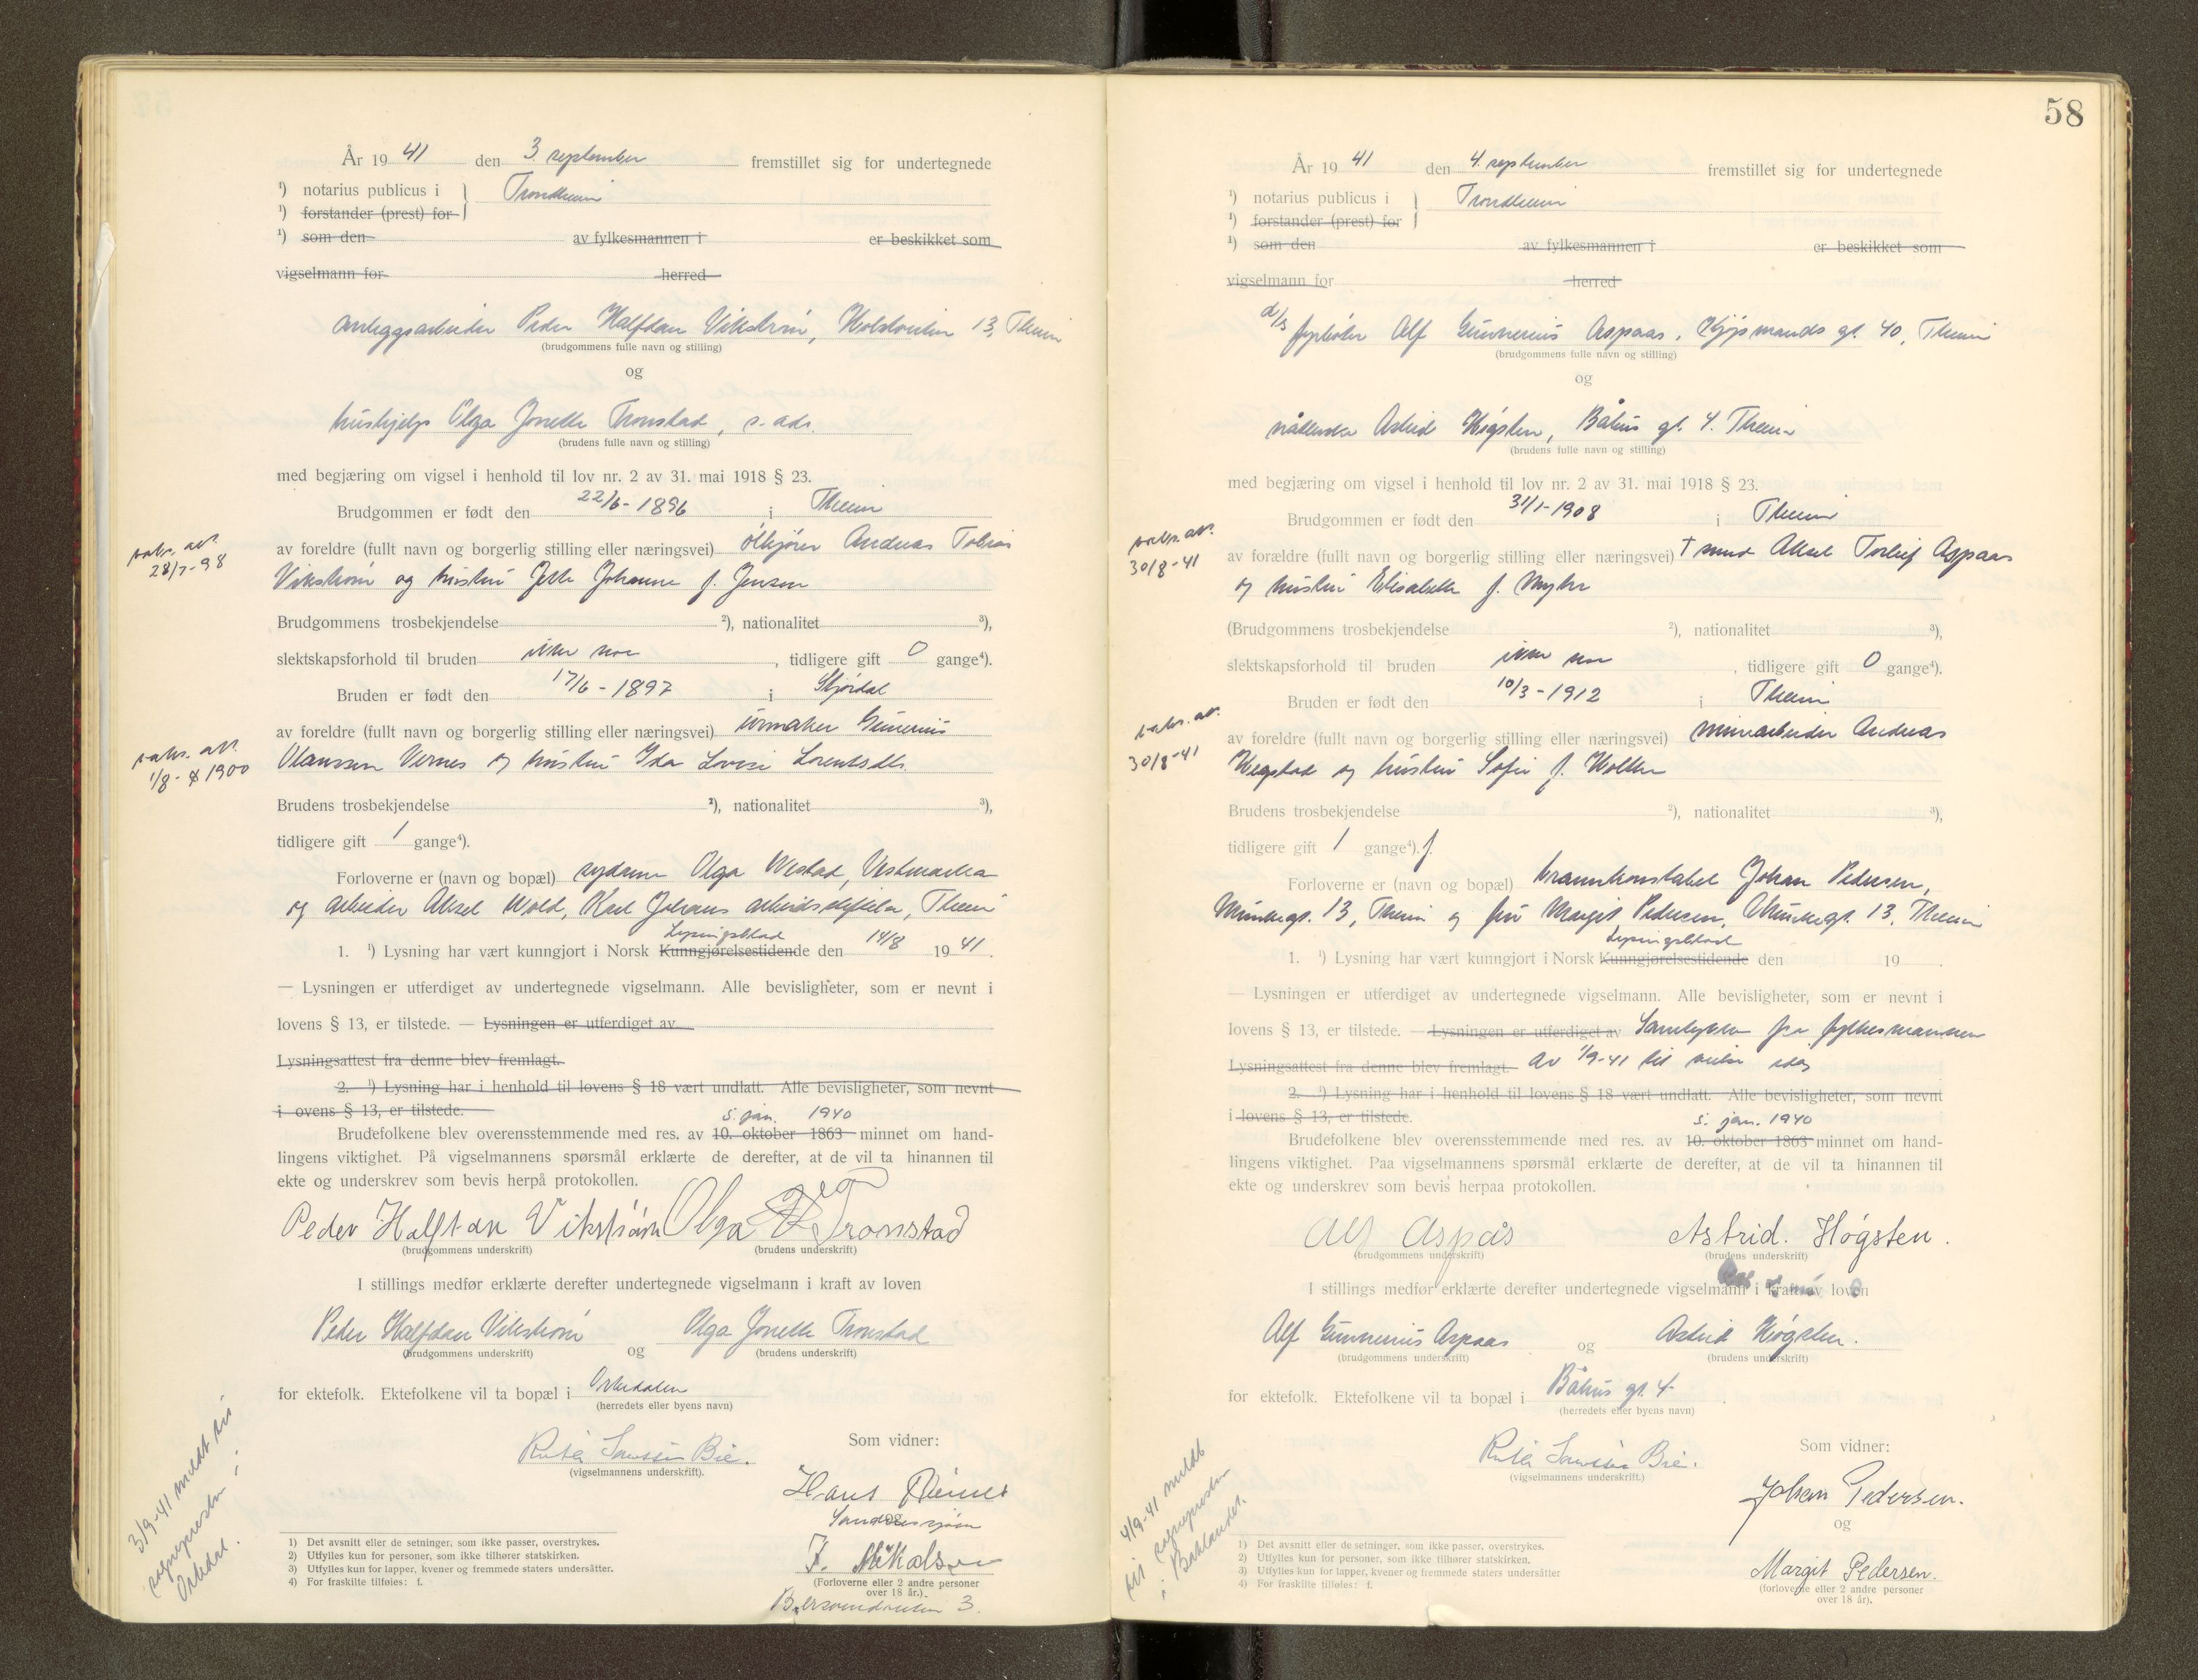 År 19 41 den 3. september fremstillet sig for undertegnede
¹) notarius publicus i } Trondheim
¹) forstander (prest) for
¹) som den av fylkesmannen i er beskikket som
vigselmann for herred
anleggsarbeider Peder Halfdan Vikstrøm, 13, Th.eim
(brudgommens fulle navn og stilling)
og
hushjelp Olga Jonette Tronstad, s. ads.
(brudens fulle navn og stilling)
med begjæring om vigsel i henhold til lov nr. 2 av 31. mai 1918 § 23.
Brudgommen er født den 22/6-1896 i Th.eim
vaks. att. 28/7-98
av foreldre (fullt navn og borgerlig stilling eller næringsvei) ølkjører Andreas Tobias
Vikstrøm og hustru Jette Johanne f. Jensen
Brudgommens trosbekjendelse ²), nationalitet ³),
slektskapsforhold til bruden ikke noe, tidligere gift 0 gange⁴).
Bruden er født den 17/6-1897 i Stjørdal
av foreldre (fullt navn og borgerlig stilling eller næringsvei) urmaker Gunerius
vaks. att. 1/8-1900
Olaussen Vernes og hustru Ida Lovise Lorentsdtr.
Brudens trosbekjendelse ²), nationalitet ³),
tidligere gift 1 gange⁴).
Forloverne er (navn og bopæl) sydame Olga Westad, Vestmarka
og arbeider Aksel Wold, Karl Johans arbeidsstiftelse, Th.eim
Lysingsblad
1. ¹) Lysning har vært kunngjort i Norsk Kunngjørelsestidende den 14/8 19 41.
— Lysningen er utferdiget av undertegnede vigselmann. Alle bevisligheter, som er nevnt i
lovens § 13, er tilstede. — Lysningen er utferdiget av
Lysningsattest fra denne blev fremlagt.
2. ¹) Lysning har i henhold til lovens § 18 vært undlatt. Alle bevisligheter, som nevnt
i ovens § 13, er tilstede.
5. jan. 1940
Brudefolkene blev overensstemmende med res. av 10. oktober 1863 minnet om hand-
lingens viktighet. På vigselmannens spørsmål erklærte de derefter, at de vil ta hinannen til
ekte og underskrev som bevis herpå protokollen.
Peder Halftan Vikstrøm Olga Tronstad
(brudgommens underskrift) (brudens underskrift)
I stillings medfør erklærte derefter undertegnede vigselmann i kraft av loven
Peder Halfdan Vikstrøm og Olga Jonette Tronstad
(brudgommens underskrift) (brudens underskrift)
for ektefolk. Ektefolkene vil ta bopæl i Orkedalen
(herredets eller byens navn)
Bie.
(vigselmannens underskrift).
Som vidner:
Hans
Sandnessjøen
og
J. Mikalsen
(Forloverne eller 2 andre personer
over 18 år.).
3.
3/9-41 meldt til
sognepresten i
Orkdal.
1) Det avsnitt eller de setninger, som ikke passer, overstrykes.
2) Utfylles kun for personer, som ikke tilhører statskirken.
3) Utfylles kun for lapper, kvener og fremmede staters undersåtter.
4) For fraskilte tilføies: f.
58
År 19 41 den 4. september fremstillet sig for undertegnede
¹) notarius publicus i } Trondheim
¹) forstander (prest) for
¹) som den av fylkesmannen i er beskikket som
vigselmann for herred
d/s fyrbøter Alf Gunnerius Aspaas, Kjøpmands gt. 40, Th.eim
(brudgommens fulle navn og stilling)
og
Astrid Høgsten, Båhus gt. 4. Th.eim
(brudens fulle navn og stilling)
med begjæring om vigsel i henhold til lov nr. 2 av 31. mai 1918 § 23.
Brudgommen er født den 31/1-1908 i Th.eim
30/8-41
av forældre (fullt navn og borgerlig stilling eller næringsvei) † smed Aksel Torleif Aspaas
og hustru Elisabeth f. Myhr
(Brudgommens trosbekjendelse ²), nationalitet ³),
slektskapsforhold til bruden ikke noe, tidligere gift 0 gange⁴).
Bruden er født den 10/3-1912 i Th.eim
vaks. att. 30/8-41
av foreldre (fullt navn og borgerlig stilling eller næringsvei) minearbeider Andreas
Hegstad og hustru Sofie f. Holten
Brudens trosbekjendelse ²), nationalitet ³),
tidligere gift 1 gange⁴). f.
Forloverne er (navn og bopæl) brannkonstabel Johan Pedersen,
Munkegt. 13, Th.eim og fru Margit Pedersen, Munkegt. 13. Th.eim
Lysingsblad
1. ¹) Lysning har vært kunngjort i Norsk Kunngjørelsestidende den 19 .
— Lysningen er utferdiget av undertegnede vigselmann. Alle bevisligheter, som er nevnt i
lovens § 13, er tilstede. — Lysningen er utferdiget av Samtykke fra fylkesmannen
Lysningsattest fra denne blev fremlagt. av 1/9-41 til vielse idag
2. ¹) Lysning har i henhold til lovens § 18 vært undlatt. Alle bevisligheter, som nevnt
i lovens § 13, er tilstede.
5. jan. 1940
Brudefolkene blev overensstemmende med res. av 10. oktober 1863 minnet om hand-
lingens viktighet. Paa vigselmannens spørsmål erklærte de derefter, at de vil ta hinannen til
ekte og underskrev som bevis herpaa protokollen.
Alf Aspås Astrid. Høgsten.
(brudgommens underskrift) (brudens underskrift)
I stillings medfør erklærte derefter undertegnede vigselmann i kraft av loven
Alf Gunnerius Aspaas og Astrid Høgsten.
(brudgommens underskrift) (brudens underskrift)
for ektefolk. Ektefolkene vil ta bopæl i Båhus gt. 4.
(herredets eller byens navn)
Bie.
(vigselmannens underskrift.)
Som vidner:
Johan Pedersen.
og
Margit Pedersen.
(forloverne eller 2 andre personer
over 18 år).
4/9-41 meldt
til sognepresten
i Baklandet.
1) Det avsnitt eller de setninger, som ikke passer, overstrykes.
2) Utfylles kun for personer, som ikke tilhører statskirken.
3) Utfylles kun for lapper, kvener og fremmede staters undersåtter
4) For fraskilte tilføies: f.